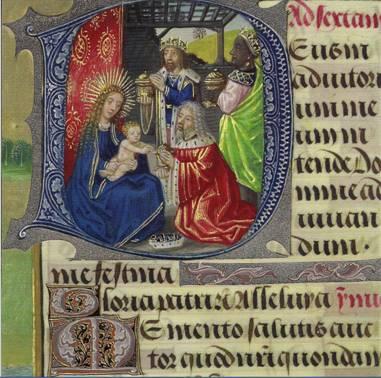 Ad sextam
Eus in
adiutori
um me
um in
tende Do
mine ad
iuuan
dum .
me festina
Gloria patri Alleluya ymn
Memento salutis auc
tor quod nr̄i quondam